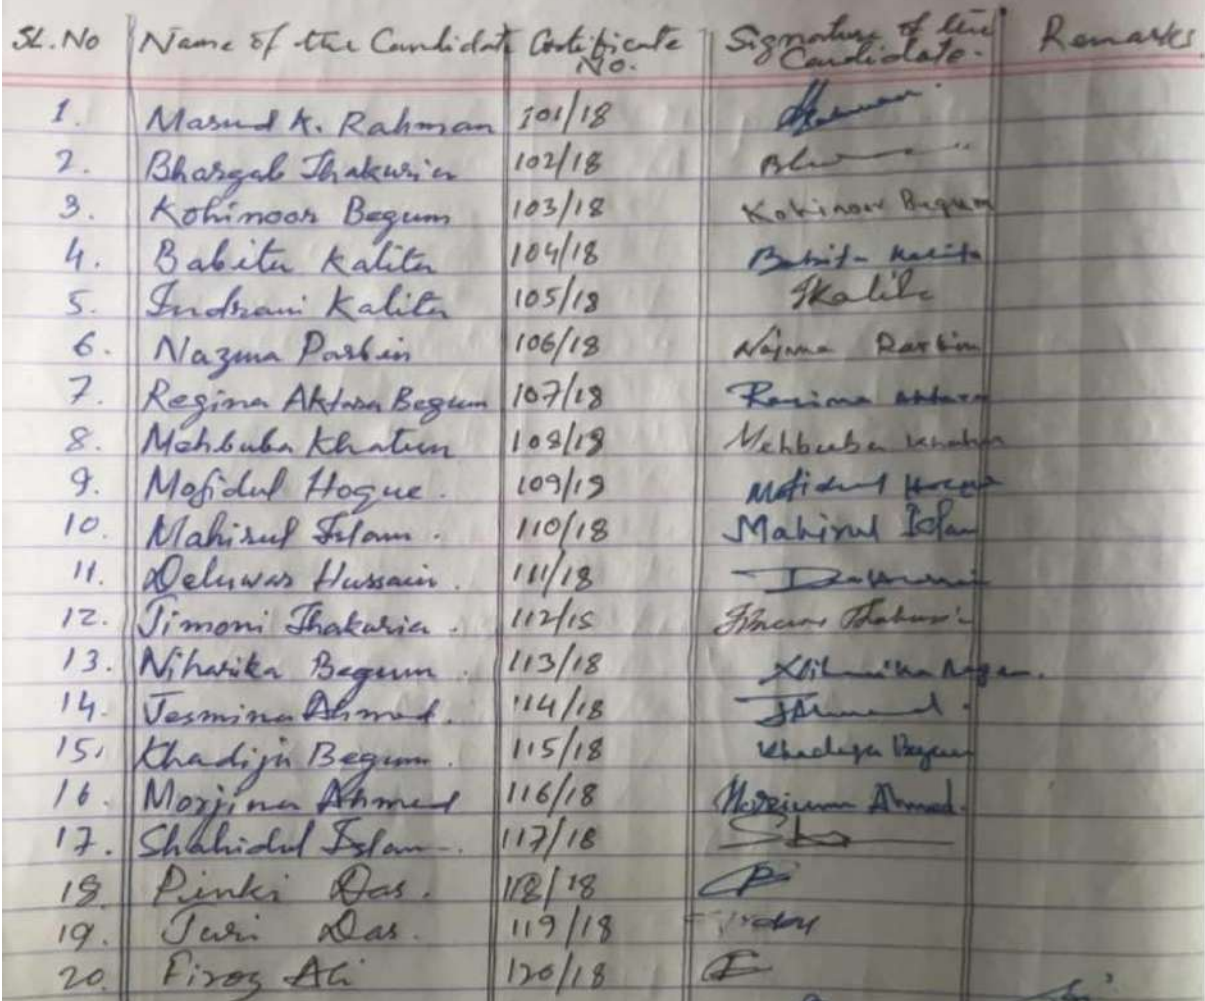 SL.No Name of the Candidate Certificate No. Signature of the Candidate. Remarks
1. Masud K. Rahman 101/18
2. Bhargab Thakuria 102/18
3. Kohinoor Begum 103/18 Kohinoor Begum
4. Babita Kalita 104/18 Babita Kalita
5. Indrani Kalita 105/18 IKalita
6. Nazma Parbin 106/18 Najma Parbin
7. Regina Aktara Begum 107/18 Aktara
8. Mehbuba Khatun 108/18 Mehbuba Khatun
9. Mofidul Hoque. 109/18 Mofidul Hoque
10. Mahirul Islam. 110/18 Mahirul Islam
11. Deluwar Hussain. 111/18
12. Jimoni Thakuria. 112/18 Thakuria
13. Niharika Begum. 113/18 Niharika Begum.
14. Jesmina Ahmed. 114/18 JAhmed.
15. Khadija Begum. 115/18 Khadija Begum
16. Morjina Ahmed 116/18 Ahmed.
17. Shahidul Islam. 117/18
18. Pinki Das. 118/18
19. Juri Das. 119/18
20. Firoz Ali 120/18